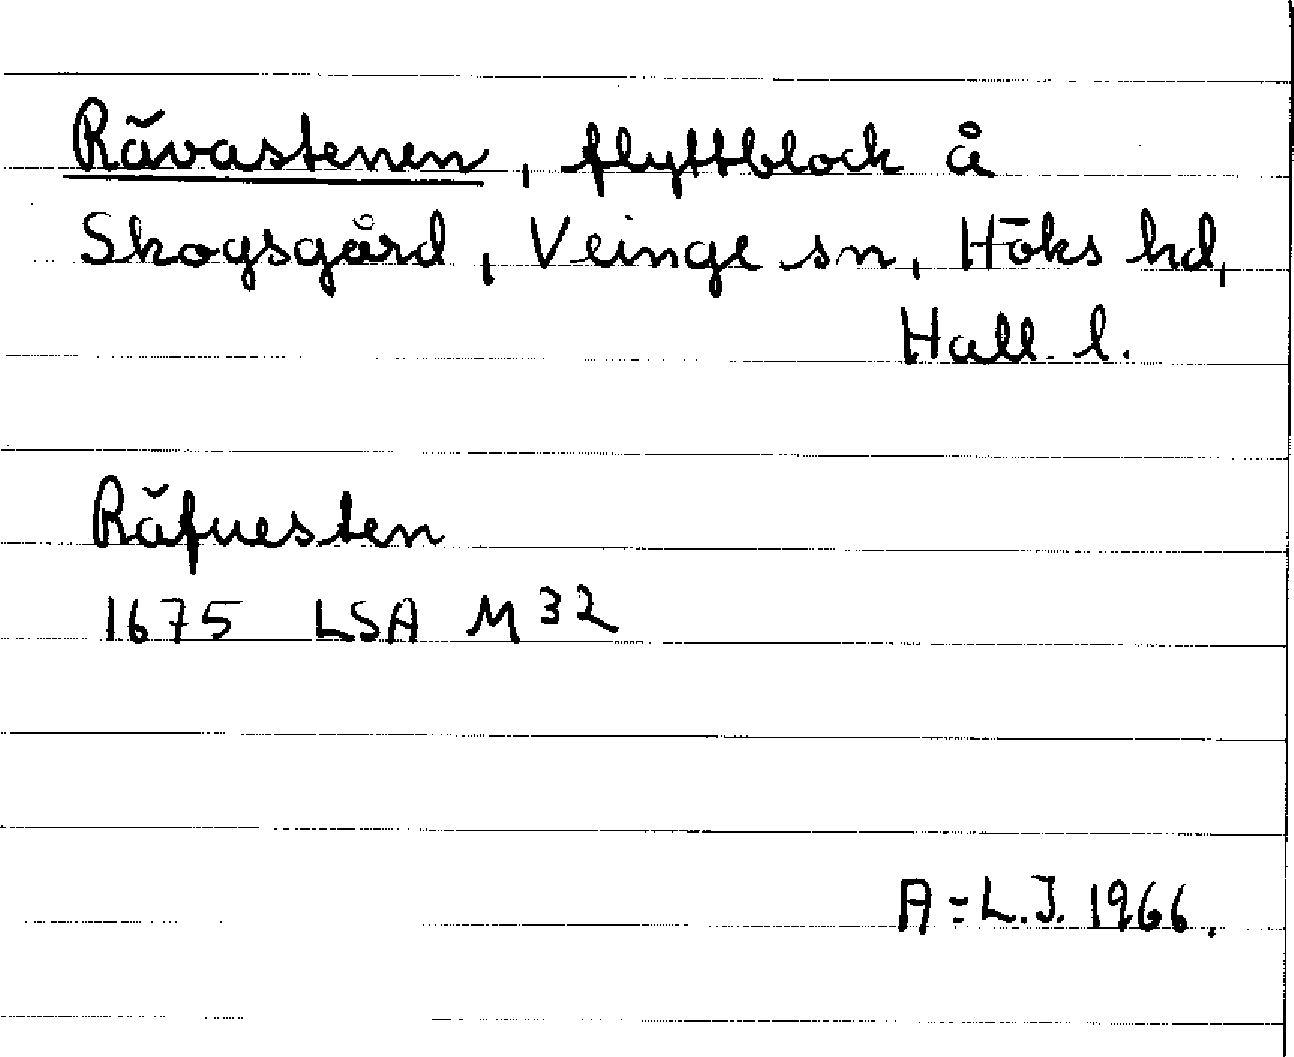 Rävastenen, flyttblock å
Skogsgård, Veinge sn, Höks hd,
Hall. l.
Räfuesten
1675 LSA M 32
A-L.J. 1966.